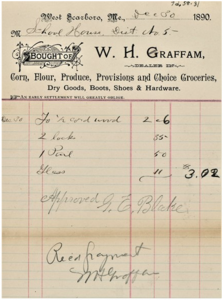 West Scarboro, Me., Dec 30 1890.
M School House, Dist No. 5
BOUGHT OF W. H. GRAFFAM,
DEALER IN
Corn, Flour, Produce, Provisions and Choice Groceries,
Dry Goods, Boots, Shoes & Hardware.
AN EARLY SETTLEMENT WILL GREATLY OBLIGE.
To wood 2.26
2 55
1 Pail 50
Glass 11 $3.02
Approved G. E. Blake
Recd Payment
W H Graffam